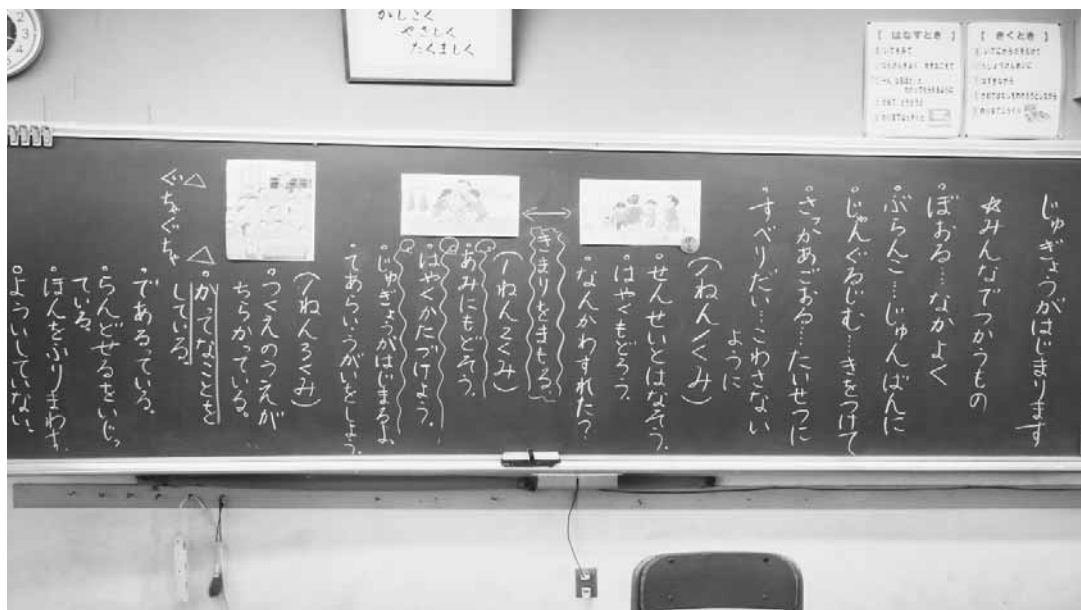 かしこく
やさしく
たくましく
【 はなすとき 】
【 きくとき 】
じゅぎょうがはじまります
☆みんなでつかうもの
ぼおる…なかよく
ぶらんこ…じゅんばんに
じゃんぐるじむ…きをつけて
さっかあごおる…たいせつに
すべりだい…こわさない
ように
(1ねん1くみ)
せんせいとはなそう。
はやくもどろう。
なんかわすれた?
きまりをまもる。
(1ねん2くみ)
あみにもどそう。
はやくかたづけよう。
じゅぎょうがはじまるよ。
てあらい・うがいをしよう。
(1ねん3くみ)
つくえのうえが
ちらかっている。
△かってなことを
している。
△ぐちゃぐちゃ
であるっている。
らんどせるをいじっ
ている。
ほんをふりまわす。
よういしていない。
2
3
4